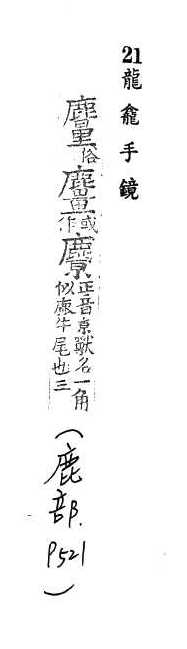 21 龍龕手鏡
俗麠或作麖正音京獸名一角似麃牛尾也三(鹿部. P521)